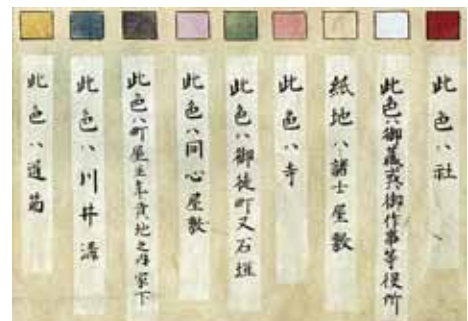 此色ハ社
此色ハ御蔵或御作事等役所
紙地ハ諸士屋敷
此色ハ寺
此色ハ御徒町又石垣
此色ハ同心屋敷
此色ハ町屋並年貢地之在家下
此色ハ川井溝
此色ハ道筋